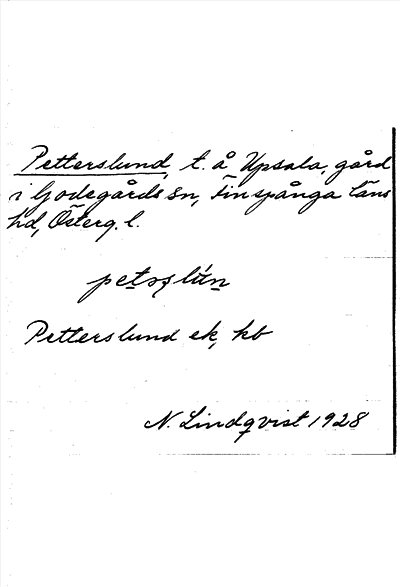 Petterslund, t. å Upsala, gård
i Godegårds sn, Finspånga läns
hd, Österg. l.
petsslún
Petterslund ek, kb
N. Lindqvist 1928